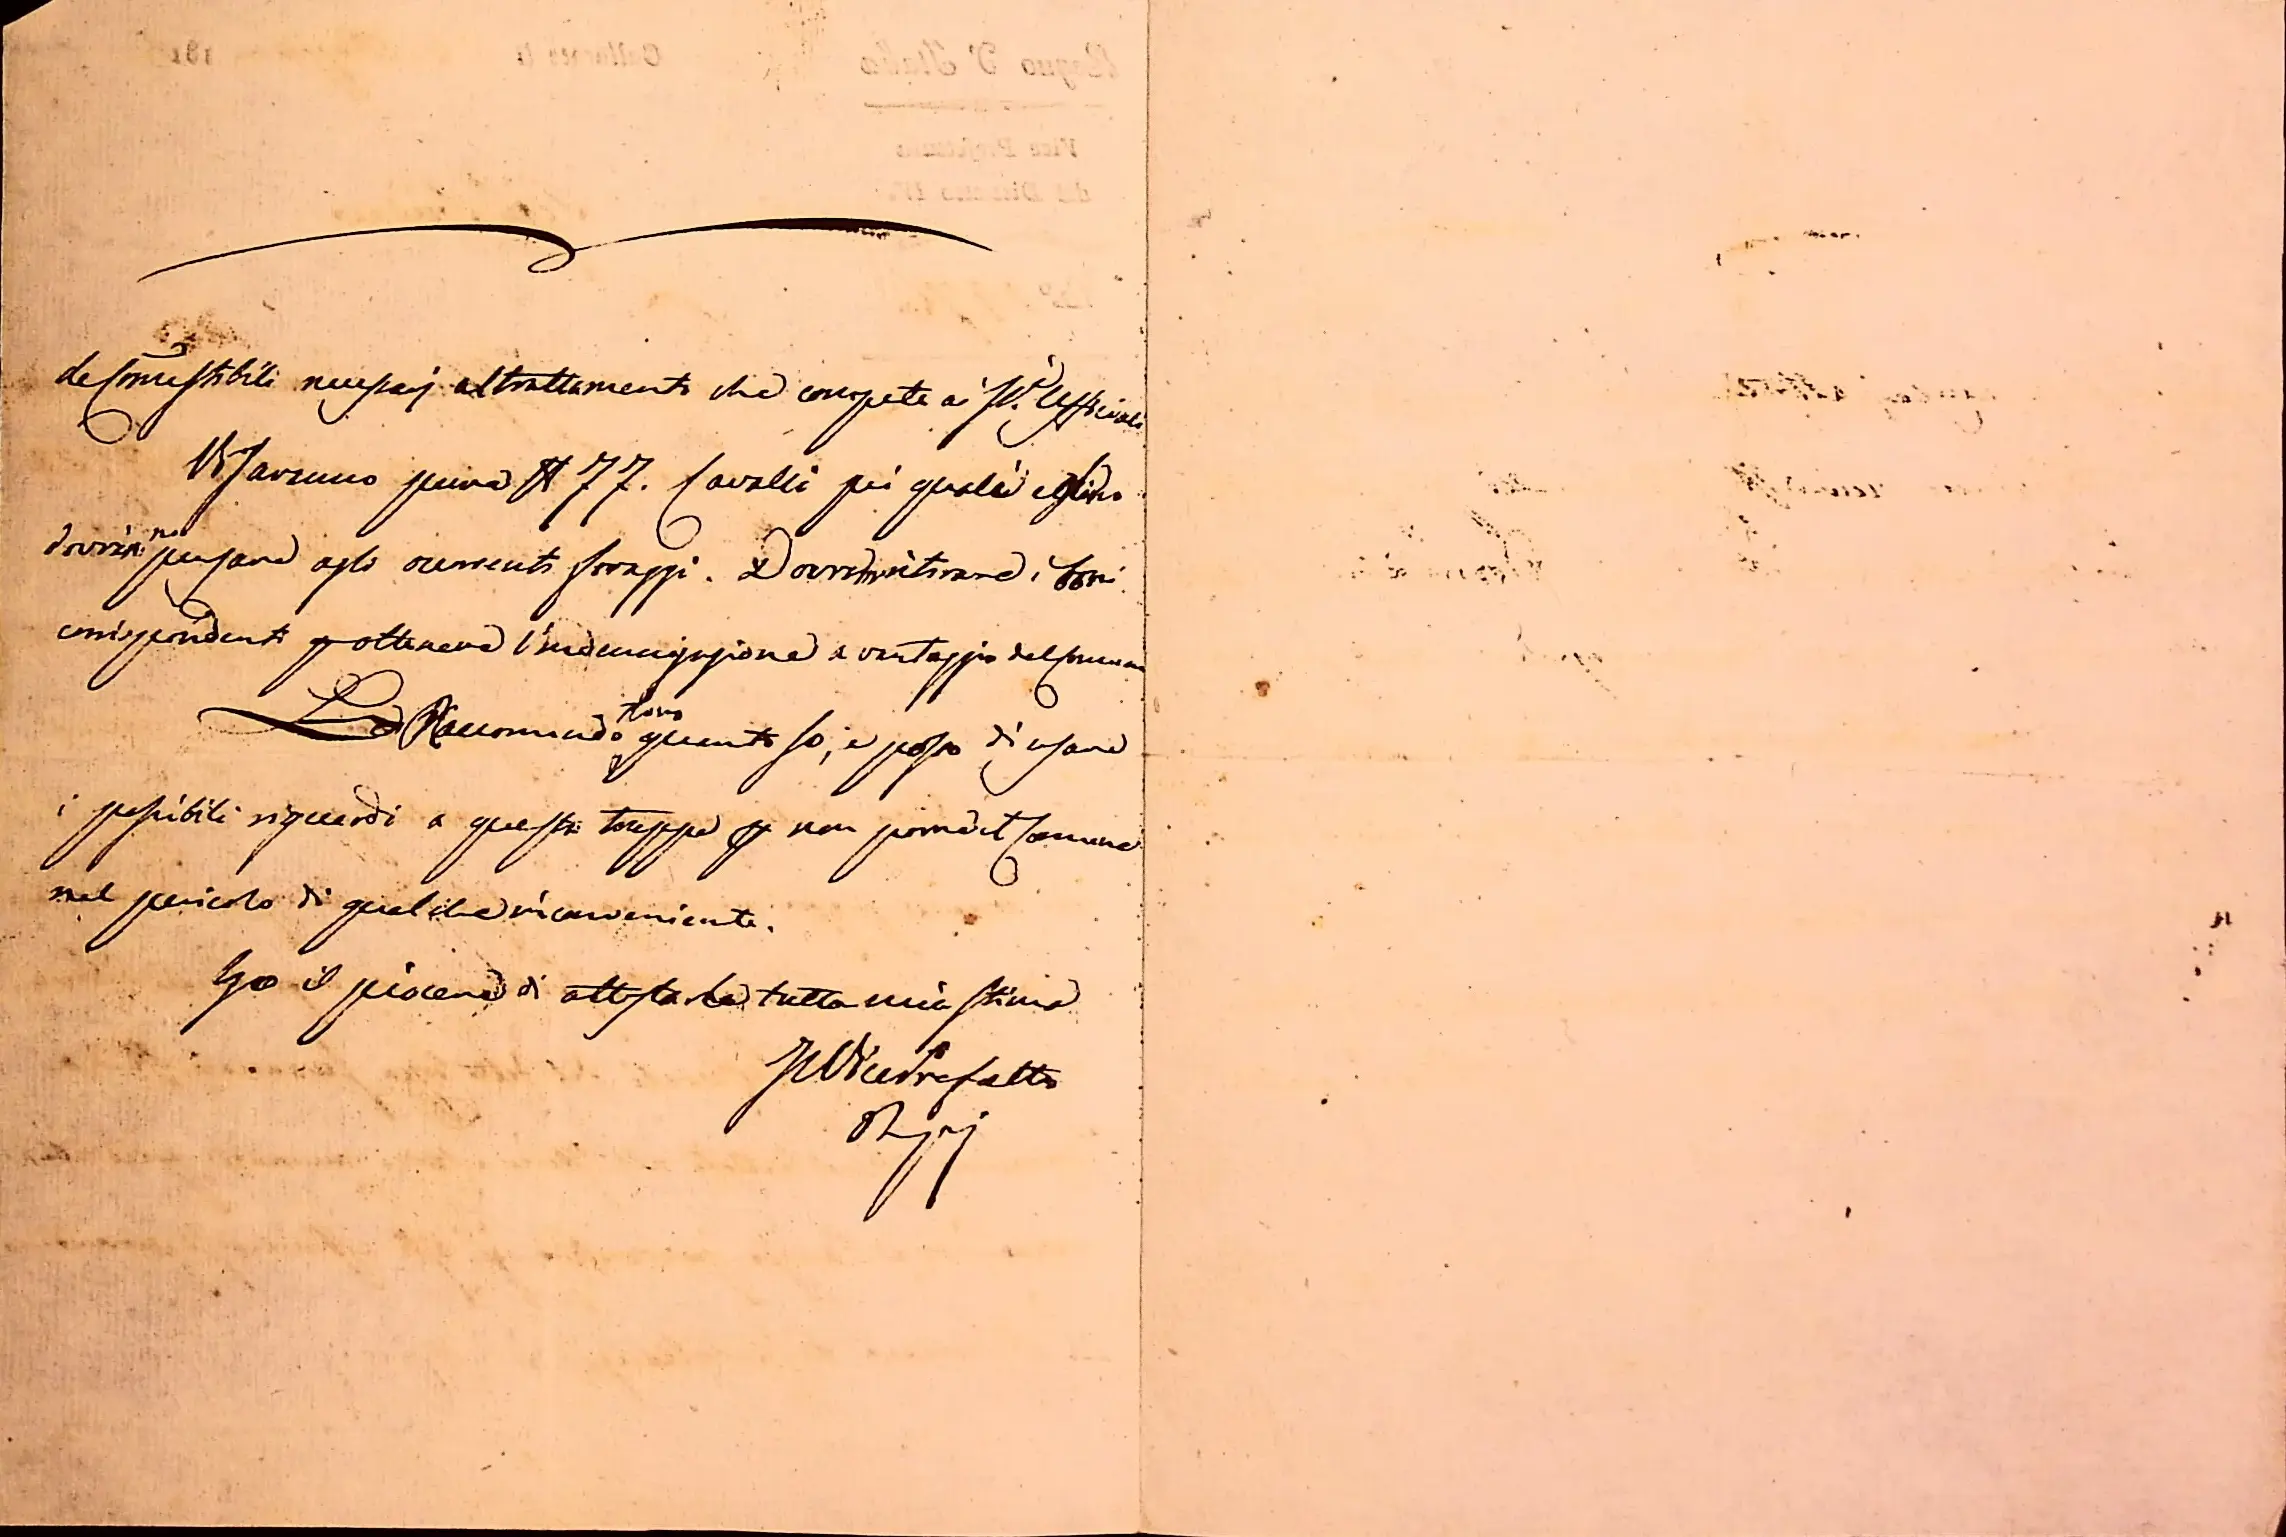 de Comestibili necessarj al trattamento che compete ai SS.i Ufficiali
Vi saranno pure N 77. Cavalli pei quali eglino
dovranno pensare agli occorrenti foraggi. Dovrà ritirare i boni
corrispondenti p ottenere l'indennizzazione a vantaggio del Comune
Le Raccomando loro quanto so, e posso di usare
i possibili riguardi a queste truppe p non porre il Comune
nel pericolo di qualche inconveniente.
Ho il piacere di attestarle tutta mia stima
Il Vice Prefetto
Regno D' Italia
Vice Prefettura